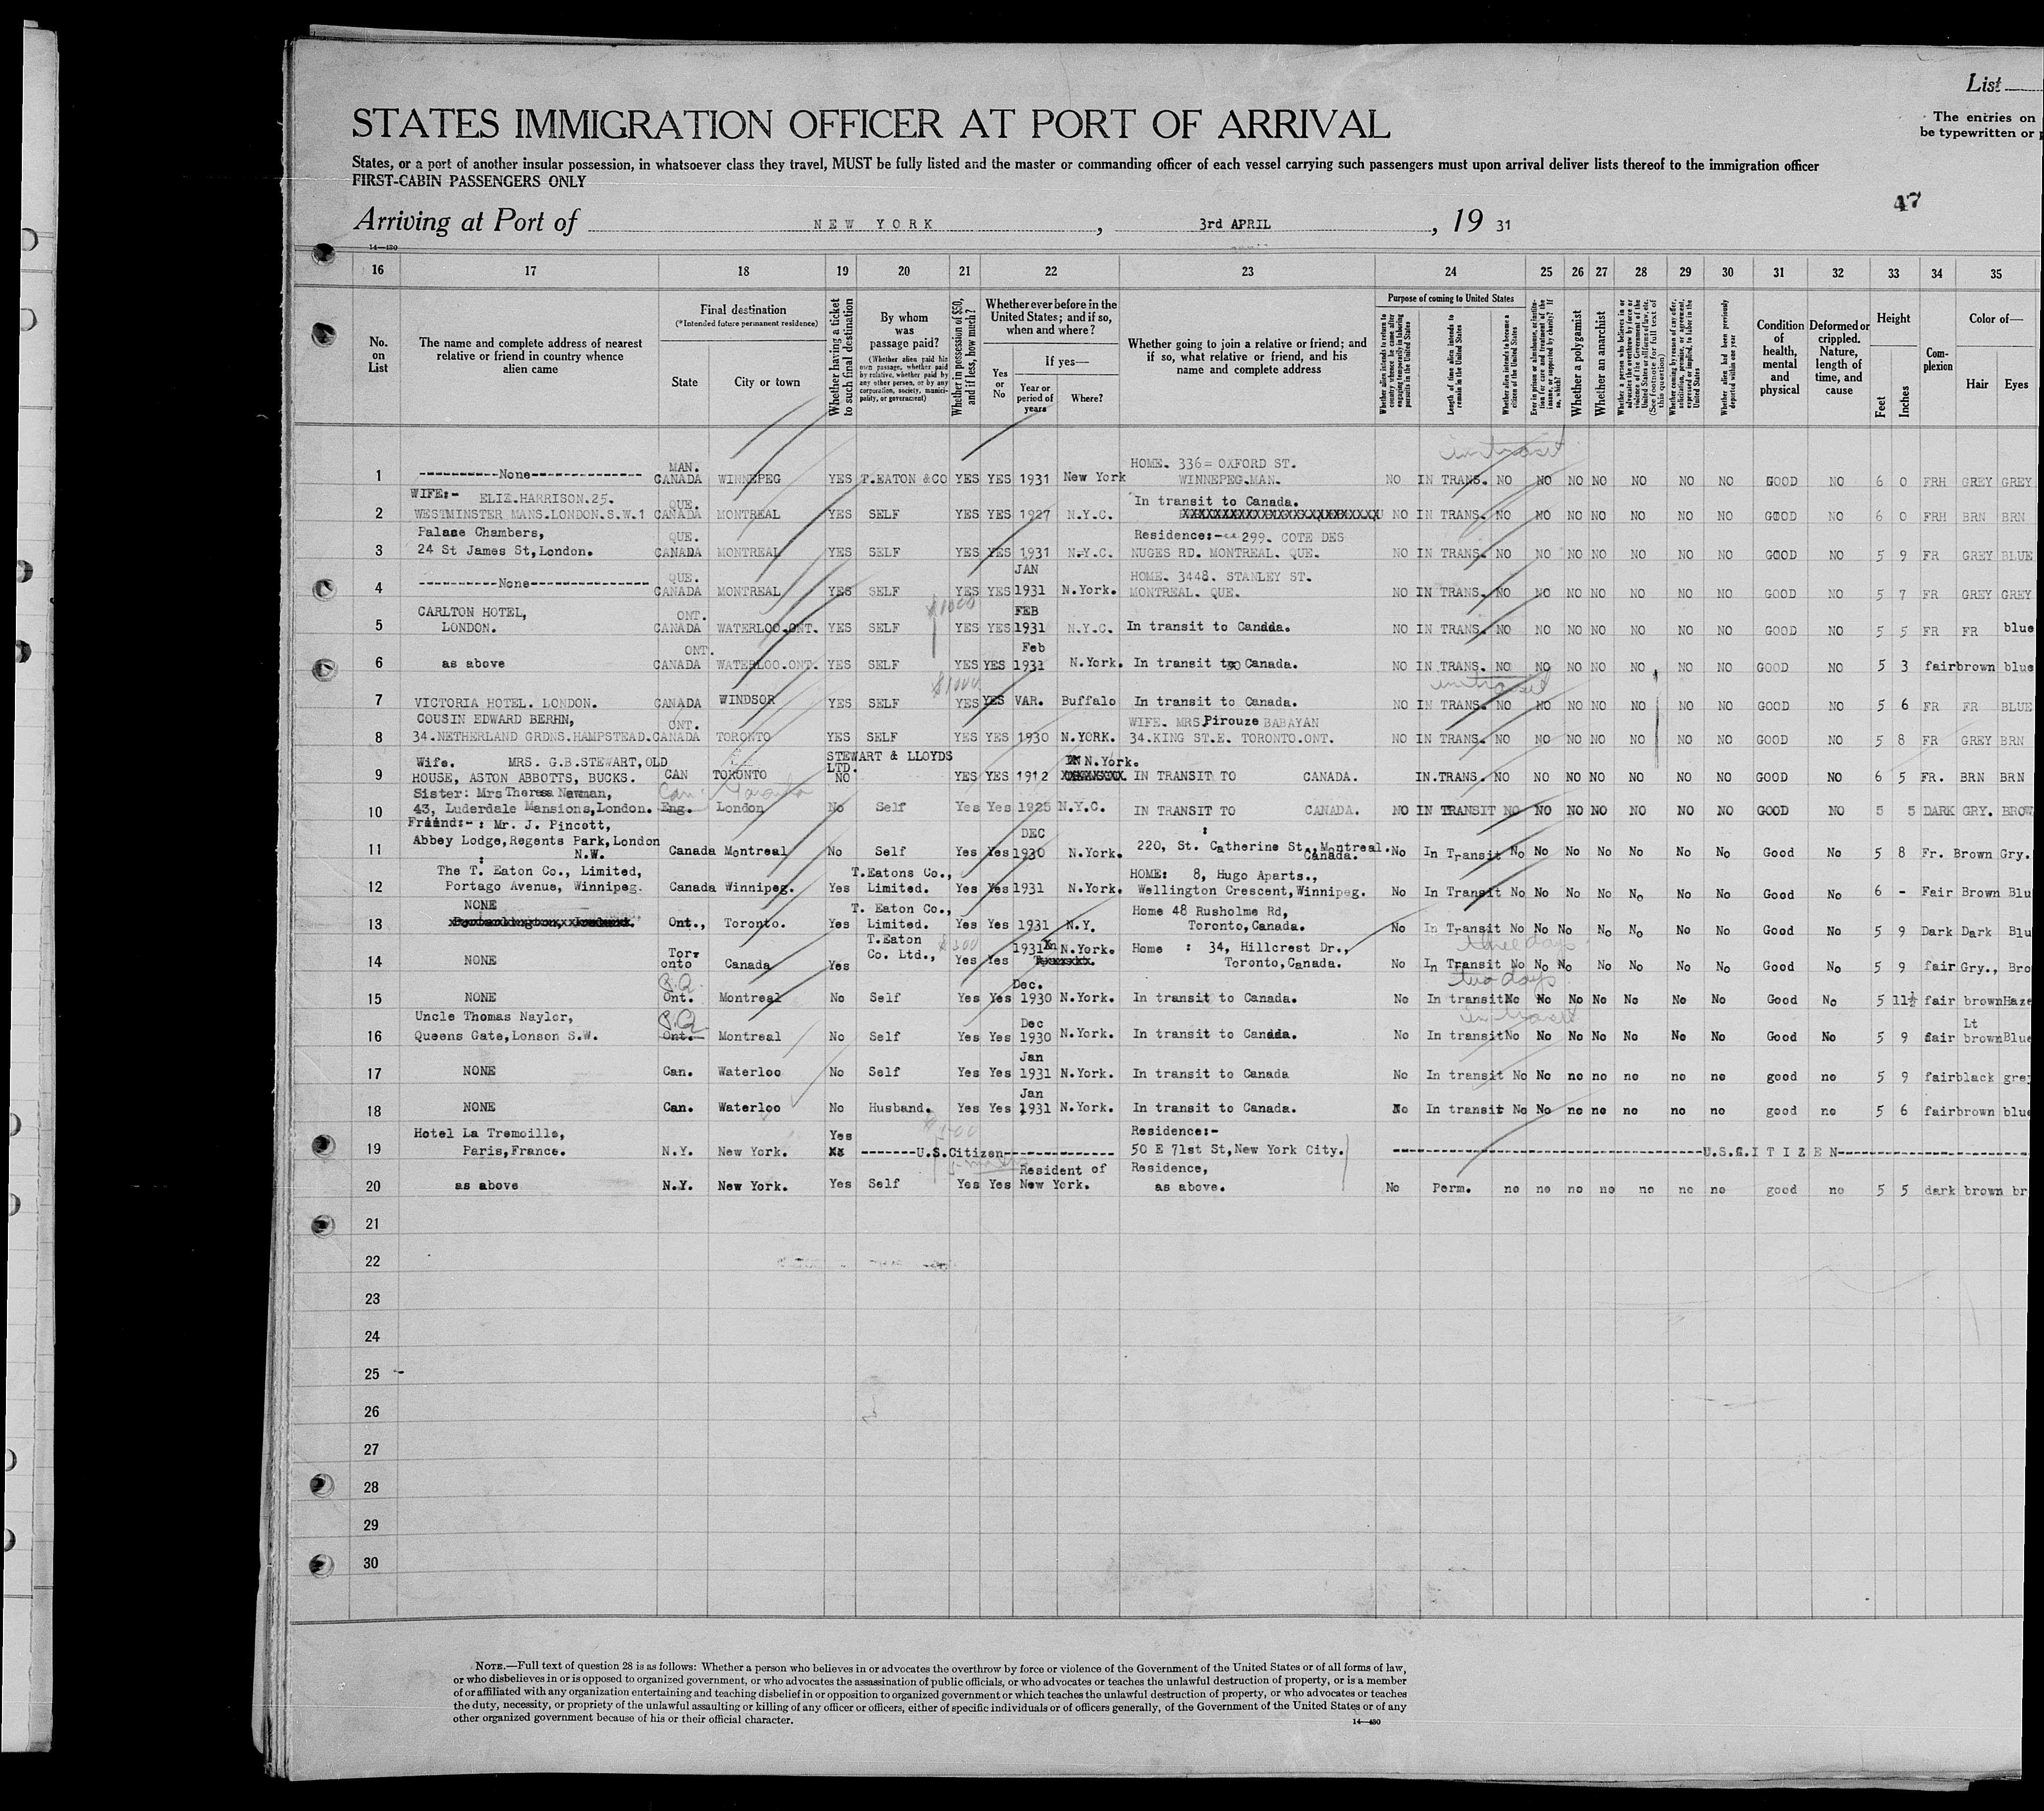 List
STATES IMMIGRATION OFFICER AT PORT OF ARRIVAL
The entries on
be typewritten or
States, or a port of another insular possession, in whatsoever class they travel, MUST be fully listed and the master or commanding officer of each vessel carrying such passengers must upon arrival deliver lists thereof to the immigration officer
FIRST-CABIN PASSENGERS ONLY
47
Arriving at Port of NEW YORK, 3rd APRIL, 19 31
14-430
16 17 18 19 20 21 22 23 24 25 26 27 28 29 30 31 32 33 34 35
No. on List
The name and complete address of nearest relative or friend in country whence alien came
Final destination
(*Intended future permanent residence)
State
City or town
Whether having a ticket to such final destination
By whom was passage paid?
(Whether alien paid his own passage, whether paid by relative, whether paid by any other person, or by any corporation, society, municipality, or government)
Whether in possession of $50, and if less, how much?
Whether ever before in the United States; and if so, when and where?
Yes or No
If yes—
Year or period of years
Where?
Whether going to join a relative or friend; and if so, what relative or friend, and his name and complete address
Purpose of coming to United States
Whether alien intends to return to country whence he came after engaging temporarily in laboring pursuits in the United States
Length of time alien intends to remain in the United States
Whether alien intends to become a citizen of the United States
Ever in prison or almshouse, or institution for care and treatment of the insane, or supported by charity? If so, which?
Whether a polygamist
Whether an anarchist
Whether a person who believes in or advocates the overthrow by force or violence of the Government of the United States or all forms of law, etc. (See footnote for full text of this question)
Whether coming by reason of any offer, solicitation, promise, or agreement, expressed or implied, to labor in the United States
Whether alien had been previously deported within one year
Condition of health, mental and physical
Deformed or crippled. Nature, length of time, and cause
Height
Feet
Inches
Com-plexion
Color of—
Hair
Eyes
in transit
1 ----------None-------------- MAN. CANADA WINNEPEG YES T.EATON &CO YES YES 1931 New York HOME. 336= OXFORD ST. WINNEPEG.MAN. NO IN TRANS. NO NO NO NO NO NO NO GOOD NO 6 0 FRH GREY GREY
2 WIFE:- ELIZ.HARRISON.25. WESTMINSTER MANS.LONDON.S.W.1 QUE. CANADA MONTREAL YES SELF YES YES 1927 N.Y.C. In transit to Canada. NO IN TRANS. NO NO NO NO NO NO NO GOOD NO 6 0 FRH BRN BRN
3 Palace Chambers, 24 St James St,London. QUE. CANADA MONTREAL YES SELF YES YES 1931 N.Y.C. Residence:- 299. COTE DES NUGES RD. MONTREAL. QUE. NO IN TRANS. NO NO NO NO NO NO NO GOOD NO 5 9 FR GREY BLUE
4 ----------None-------------- QUE. CANADA MONTREAL YES SELF YES YES JAN 1931 N.York. HOME. 3448. STANLEY ST. MONTREAL. QUE. NO IN TRANS. NO NO NO NO NO NO NO GOOD NO 5 7 FR GREY GREY
5 CARLTON HOTEL, LONDON. ONT. CANADA WATERLOO.ONT. YES SELF $1000 YES YES FEB 1931 N.Y.C. In transit to Canada. NO IN TRANS. NO NO NO NO NO NO NO GOOD NO 5 5 FR FR blue
6 as above ONT. CANADA WATERLOO.ONT. YES SELF YES YES Feb 1931 N.York. In transit to Canada. NO IN TRANS. NO NO NO NO NO NO NO GOOD NO 5 3 fair brown blue
in transit
7 VICTORIA HOTEL. LONDON. CANADA WINDSOR YES SELF $1000 YES YES VAR. Buffalo In transit to Canada. NO IN TRANS. NO NO NO NO NO NO NO GOOD NO 5 6 FR FR BLUE
8 COUSIN EDWARD BERHN, 34.NETHERLAND GRDNS.HAMPSTEAD. ONT. CANADA TORONTO YES SELF YES YES 1930 N.YORK. WIFE. MRS Pirouze BABAYAN 34.KING ST.E. TORONTO.ONT. NO IN TRANS. NO NO NO NO NO NO NO GOOD NO 5 8 FR GREY BRN
9 Wife. MRS. G.B.STEWART,OLD HOUSE, ASTON ABBOTTS, BUCKS. CAN TORONTO NO STEWART & LLOYDS LTD. YES YES 1912 N.York. IN TRANSIT TO CANADA. IN.TRANS. NO NO NO NO NO NO NO GOOD NO 6 5 FR. BRN BRN
10 Sister: Mrs Theresa Newman, 43, Luderdale Mansions,London. Can: Toronto Eng. London No Self Yes Yes 1925 N.Y.C. IN TRANSIT TO CANADA. NO IN TRANSIT NO NO NO NO NO NO NO GOOD NO 5 5 DARK GRY. BROW
11 Friend:- : Mr. J. Pincott, Abbey Lodge,Regents Park,London N.W. Canada Montreal No Self Yes Yes DEC 1930 N.York. 220, St. Catherine St., Montreal. Canada. No In Transit No No No No No No No Good No 5 8 Fr. Brown Gry.
12 The T. Eaton Co., Limited, Portago Avenue, Winnipeg. Canada Winnipeg. Yes T.Eatons Co., Limited. Yes Yes 1931 N.York. HOME: 8, Hugo Aparts., Wellington Crescent,Winnipeg. No In Transit No No No No No No No Good No 6 - Fair Brown Blu
13 NONE Ont., Toronto. Yes T. Eaton Co., Limited. Yes Yes 1931 N.Y. Home 48 Rusholme Rd, Toronto,Canada. No In Transit No No No No No No No Good No 5 9 Dark Dark Blu
three days
14 NONE Tor-onto Canada Yes T.Eaton Co. Ltd., $300 Yes Yes 1931 N.York. Home : 34, Hillcrest Dr., Toronto,Canada. No In Transit No No No No No No No Good No 5 9 fair Gry., Bro
two days
15 NONE P.Q. Ont. Montreal No Self Yes Yes Dec. 1930 N.York. In transit to Canada. No In transit No No No No No No No Good No 5 11½ fair brown Haze
in transit
16 Uncle Thomas Naylor, Queens Gate,Lonson S.W. P.Q. Ont. Montreal No Self Yes Yes Dec 1930 N.York. In transit to Canada. No In transit No No No No No No No Good No 5 9 fair Lt brown Blue
17 NONE Can. Waterloo No Self Yes Yes Jan 1931 N.York. In transit to Canada No In transit No No no no no no no good no 5 9 fair black grey
18 NONE Can. Waterloo No Husband. Yes Yes Jan 1931 N.York. In transit to Canada. No In transit No No no no no no no good no 5 6 fair brown blue
19 Hotel La Tremoille, Paris,France. N.Y. New York. Yes -------U.S.Citizen-------------- Residence:- 50 E 71st St,New York City. ----------U.S.CITIZEN----------
20 as above N.Y. New York. Yes Self Yes Yes Resident of New York. Residence, as above. No Perm. no no no no no no no good no 5 5 dark brown br
21
22
23
24
25
26
27
28
29
30
NOTE.—Full text of question 28 is as follows: Whether a person who believes in or advocates the overthrow by force or violence of the Government of the United States or of all forms of law,
or who disbelieves in or is opposed to organized government, or who advocates the assassination of public officials, or who advocates or teaches the unlawful destruction of property, or is a member
of or affiliated with any organization entertaining and teaching disbelief in or opposition to organized government or which teaches the unlawful destruction of property, or who advocates or teaches
the duty, necessity, or propriety of the unlawful assaulting or killing of any officer or officers, either of specific individuals or of officers generally, of the Government of the United States or of any
other organized government because of his or their official character.
14-430